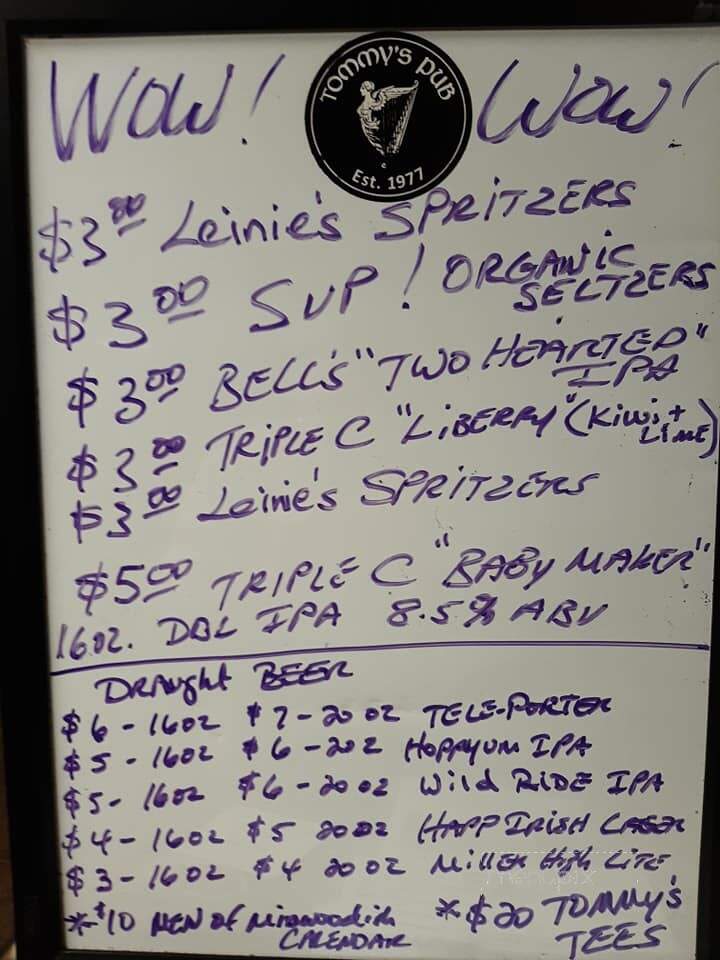 WOW! TOMMY'S PUB WOW!
Est. 1977
$3.00 Leinie's SPRITZERS
$3.00 SUP! ORGANIC
SELTZERS
$3.00 BELL'S "TWO HEARTED"
IPA
$3.00 TRIPLE C "LiBERRY" (Kiwi +
LIME)
$3.00 Leinie's SPRITZERS
$5.00 TRIPLE C "BABY MAKER"
16oz. DBL IPA 8.5% ABV
DRAught BEER
$6-16oz $7-20oz TELE-PORTER
$5-16oz $6-20z HOPPYUM IPA
$5-16oz $6-20oz Wild RIDE IPA
$4-16oz $5 20oz HAPP IRISH LAGER
$3-16oz $4 20oz MilleR High LiTE
*-$10 MEN of
CALENDAR
*$20 TOMMY'S
TEES